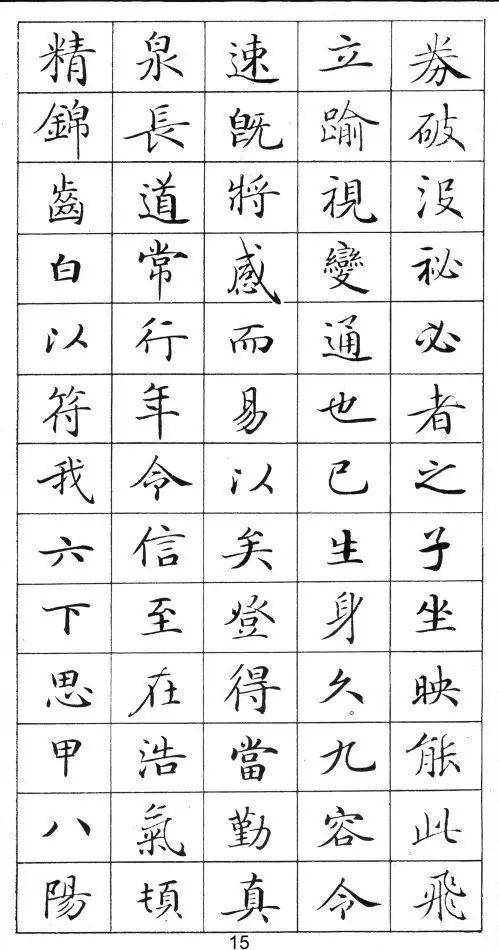 券破没祕必者之子坐映能此飛
立踰視變通也已生身久。九容令
速旣將感而易以矣登得當勤真
泉長道常行年令信至在浩氣頓
精錦齒白以符我六下思甲八陽
15